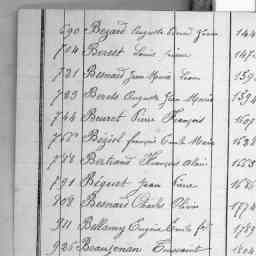 690 Bezard Auguste 144
704 Berest Louis Pierre 147
721 Besnard Jean Marie Léon 159
723 Berets Auguste Jean Marie 1594
744 Beuret Pierre François 1609
Béziel François Emile Marie 1638
788 Bertrand François Alain 1663
791 Béguet Jean Pierre 1686
808 Besnard Charles Olivier 1774
911 Bellamy Eugène Emile fr. 1789
925 Beaujenan Toussaint 1804